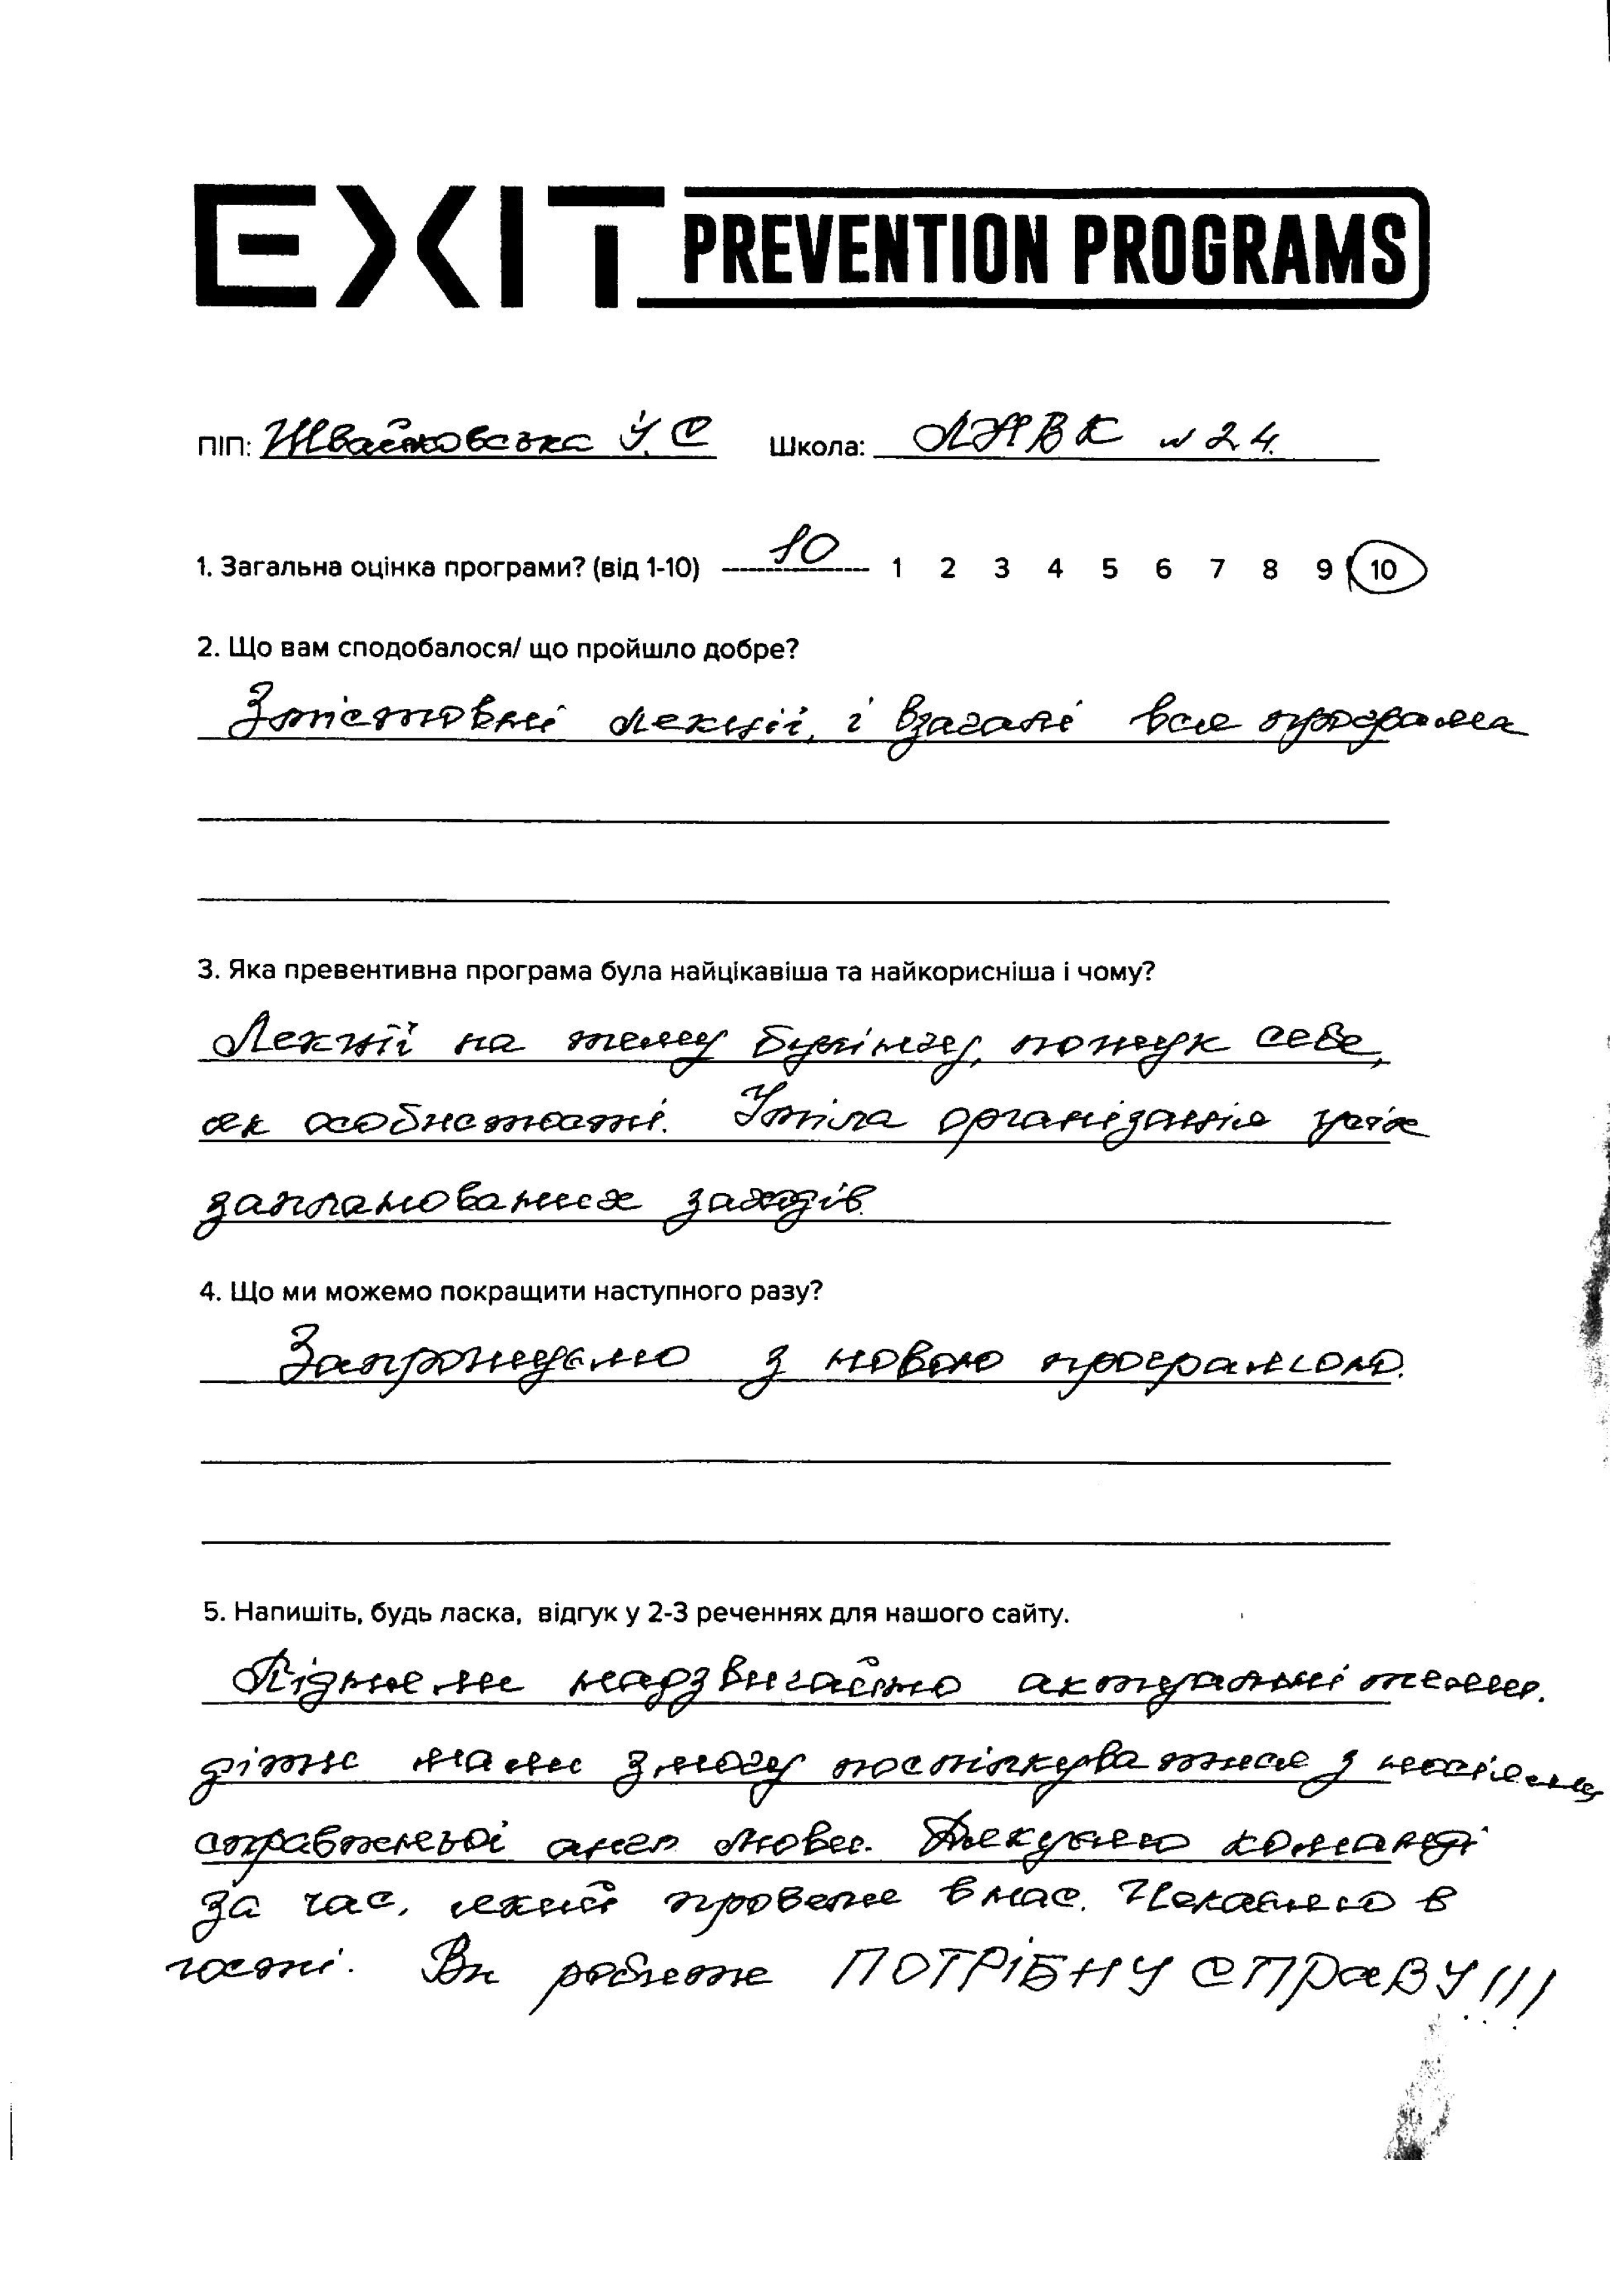 EXIT PREVENTION PROGRAMS
ПІП: Швайковська І. С Школа: ЛНВК №24.
1. Загальна оцінка програми? (від 1-10) 10 1 2 3 4 5 6 7 8 9 10
2. Що вам сподобалося/ що пройшло добре?
Змістовні лекції, і взагалі вся програма
3. Яка превентивна програма була найцікавіша та найкорисніша і чому?
Лекції на тему булінгу, пошук себе,
як особистості. Уміла організація усіх
запланованих заходів.
4. Що ми можемо покращити наступного разу?
Запрошуємо з новою програмою.
5. Напишіть, будь ласка, відгук у 2-3 реченнях для нашого сайту.
Підняли надзвичайно актуальні теми.
діти мали змогу поспілкуватися з носіями
справжньої англ мови. Дякуємо команді
за час, який провели в нас. Чекаємо в
гості. Ви робите ПОТРІБНУ СПРАВУ!!!